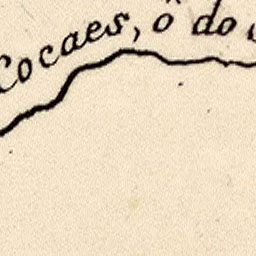 Cocaes, ô do